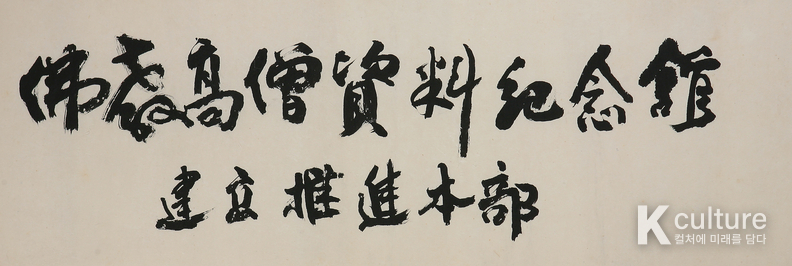 佛敎高僧資料紀念館
建立推進本部
K culture
컬처에 미래를 담다